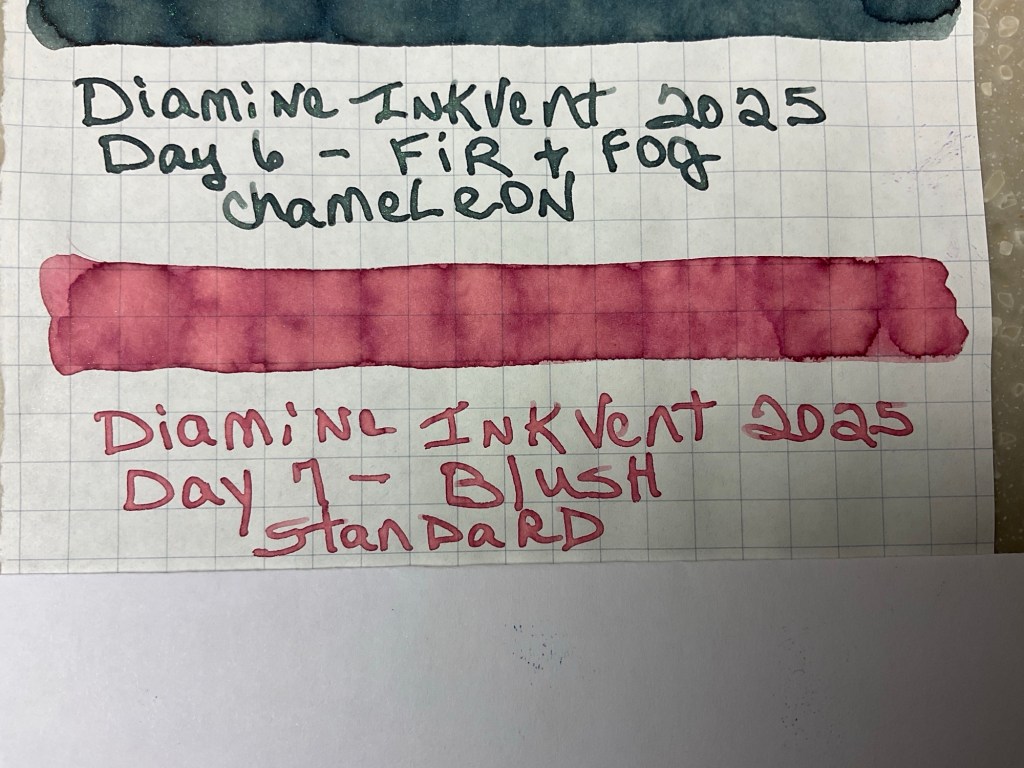 Diamine Inkvent 2025
Day 6 - Fir + Fog
Chameleon
Diamine Inkvent 2025
Day 7 - Blush
Standard